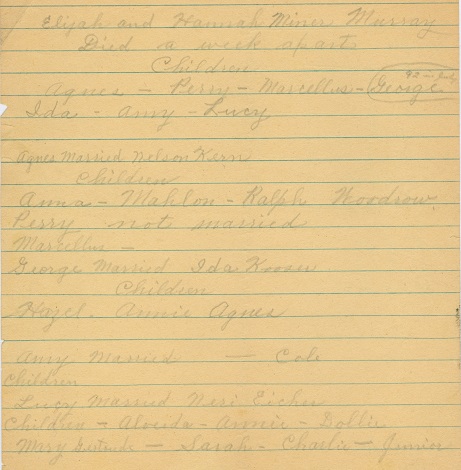 Elijah and Hannah Miner Murray
Died a week apart
Children
Agnes - Perry - Marcellus - George 92 in July
Ida - Amy - Lucy
Agnes Married Nelson Kern
Children
Anna - Mahlon - Ralph Woodrow
Perry not married
Marcellus -
George Married Ida Kooser
Children
Hazel. Annie Agnes
Amy Married — Cole
Children
Lucy Married Neri Eicher
Children - Alveida - Annie - Dollie
Mary Gertrude - Sarah - Charlie - Junior